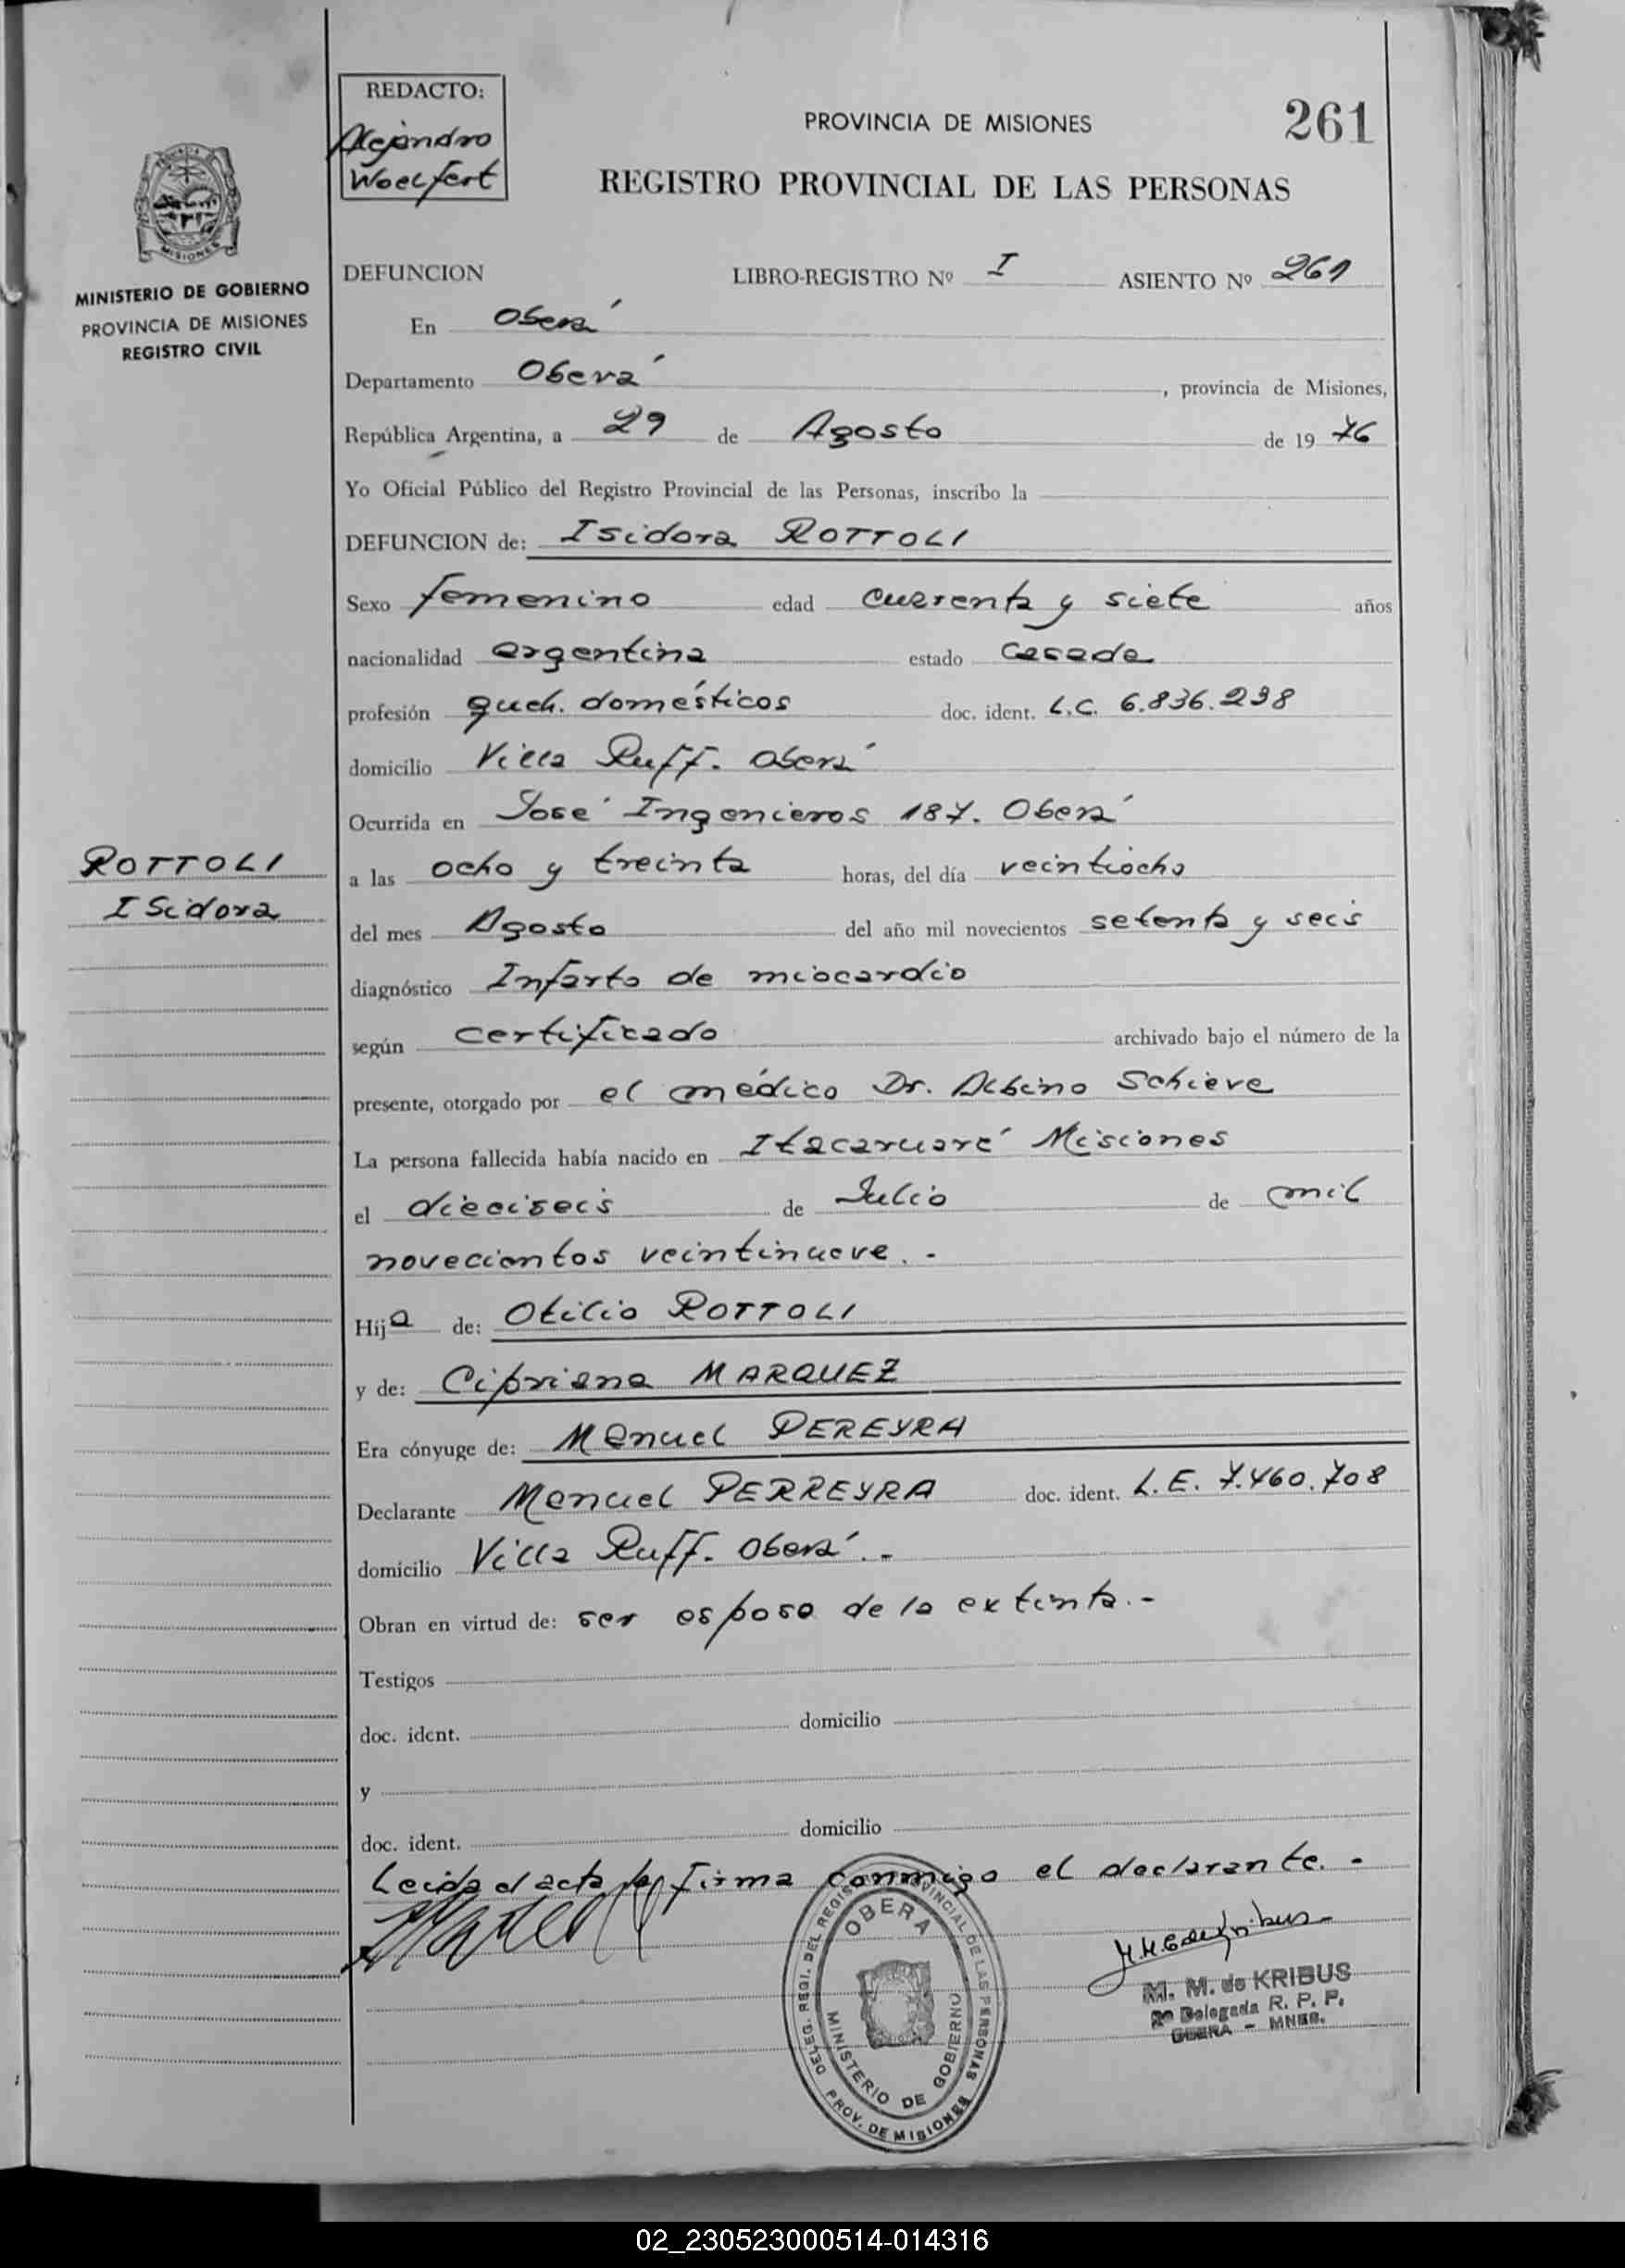 261
REDACTO:
Alejandro
Woelfert
PROVINCIA DE MISIONES
REGISTRO PROVINCIAL DE LAS PERSONAS
MISIONES
MINISTERIO DE GOBIERNO
PROVINCIA DE MISIONES
REGISTRO CIVIL
DEFUNCION LIBRO-REGISTRO Nº I ASIENTO Nº 261
En Oberá
Departamento Oberá, provincia de Misiones,
República Argentina, a 29 de Agosto de 1976
Yo Oficial Público del Registro Provincial de las Personas, inscribo la
DEFUNCION de: Isidora ROTTOLI
Sexo femenino edad cuarenta y siete años
nacionalidad argentina estado casada
profesión queh. domésticos doc. ident. L.C. 6.836.238
domicilio Villa Ruff. Oberá
Ocurrida en José Ingenieros 187. Oberá
ROTTOLI
Isidora
a las ocho y treinta horas, del día veintiocho
del mes Agosto del año mil novecientos setenta y seis
diagnóstico Infarto de miocardio
según certificado archivado bajo el número de la
presente, otorgado por el médico Dr. Albino Schieve
La persona fallecida había nacido en Itacaruaré Misiones
el dieciseis de Julio de mil
novecientos veintinueve.-
Hija de: Otilio ROTTOLI
y de: Cipriana MARQUEZ
Era cónyuge de: Manuel PEREYRA
Declarante Manuel PERREYRA doc. ident. L.E. 7.460.708
domicilio Villa Ruff. Oberá.-
Obran en virtud de: ser esposo de la extinta.-
Testigos
doc. ident. domicilio
y
doc. ident. domicilio
Leida el acta la firma conmigo el declarante.-
DELEG. REGI. DEL REGIS. PROVINCIAL DE LAS PERSONAS
OBERA
MINISTERIO DE GOBIERNO
PROV. DE MISIONES
M. M. de KRIBUS
Delegada R. P. P.
OBERA - MNES.
02_230523000514-014316